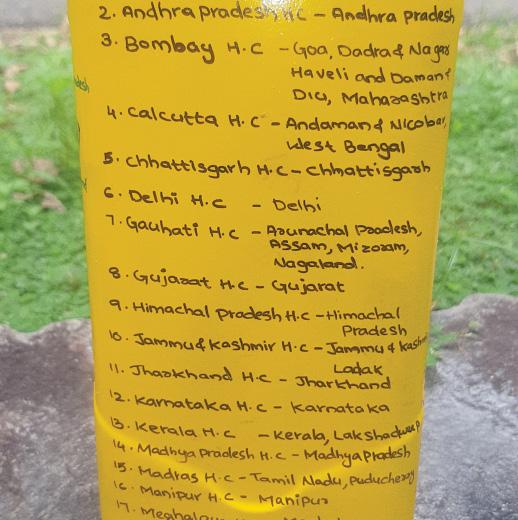 2. Andhra pradesh H.C - Andhra pradesh
3. Bombay H.C - Goa, Dadra & Nagar
Haveli and Daman &
Diu, Maharashtra
4. Calcutta H.C - Andaman & Nicobar,
West Bengal
5. Chhattisgarh H.C - Chhattisgarh
6. Delhi H.C - Delhi
7. Gauhati H.C - Arunachal Pradesh,
Assam, Mizoram,
Nagaland.
8. Gujarat H.C - Gujarat
9. Himachal pradesh H.C - Himachal
Pradesh
10. Jammu & Kashmir H.C - Jammu & Kashm
Ladak
11. Jharkhand H.C - Jharkhand
12. Karnataka H.C - Karnataka
13. Kerala H.C - Kerala, Lakshadweep
14. Madhya pradesh H.C - Madhya pradesh
15. Madras H.C - Tamil Nadu, Puducherry
16. Manipur H.C - Manipur
17.